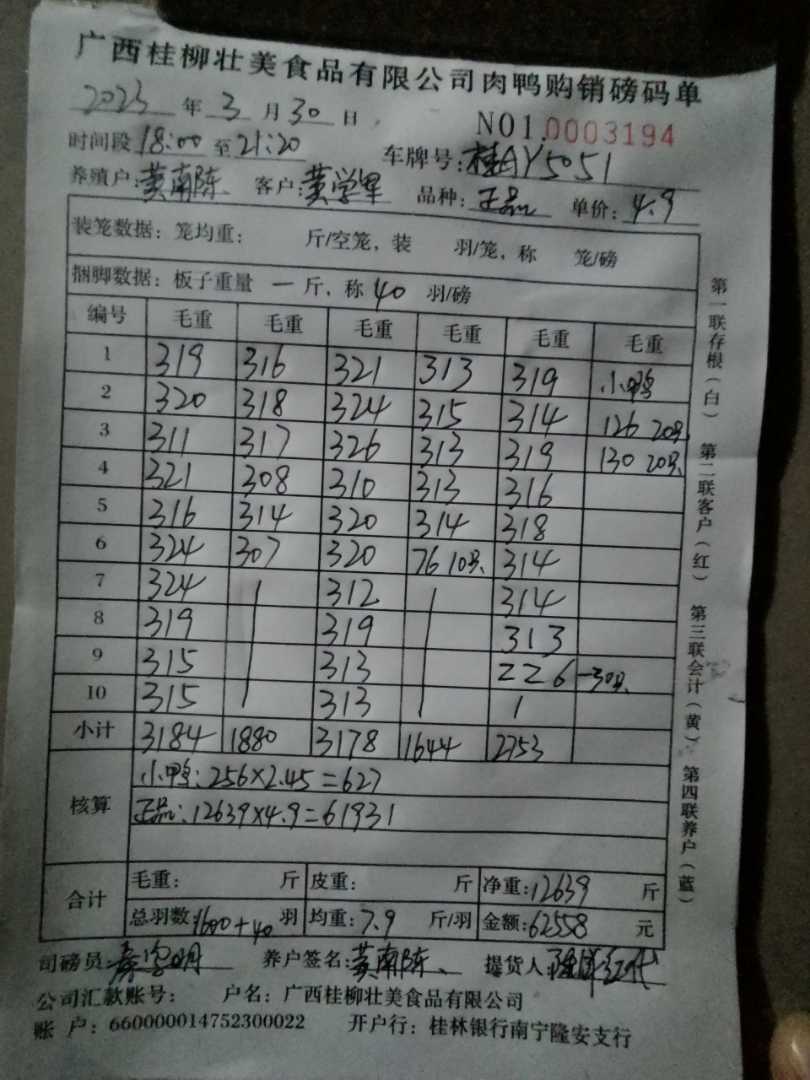 广西桂柳壮美食品有限公司肉鸭购销磅码单
2023 年 3 月 30 日
NO1.0003194
时间段 18:00 至 21:20 车牌号: 桂AY5051
养殖户: 黄南陈 客户: 黄学军 品种: 正品 单价: 4.9
装笼数据: 笼均重: 斤/空笼, 装 羽/笼, 称 笼/磅
捆脚数据: 板子重量 一 斤, 称 40 羽/磅
编号 毛重 毛重 毛重 毛重 毛重 毛重
1 319 316 321 313 319 小鸭
2 320 318 324 315 314 126 20只
3 311 317 326 313 319 130 20只
4 321 308 310 313 316
5 316 314 320 314 318
6 324 307 320 76 10只 314
7 324 312 314
8 319 319 313
9 315 313 226 -30只
10 315 313
小计 3184 1880 3178 1644 2753
核算
小鸭: 256×2.45=627
正品: 12639×4.9=61931
合计
毛重: 斤 皮重: 斤 净重: 12639 斤
总羽数: 1600+40 羽 均重: 7.9 斤/羽 金额: 62558 元
司磅员: 养户签名: 黄南陈 提货人:
公司汇款账号: 户名: 广西桂柳壮美食品有限公司
账 户: 660000014752300022 开户行: 桂林银行南宁隆安支行
第一联存根(白) 第二联客户(红) 第三联会计(黄) 第四联养户(蓝)